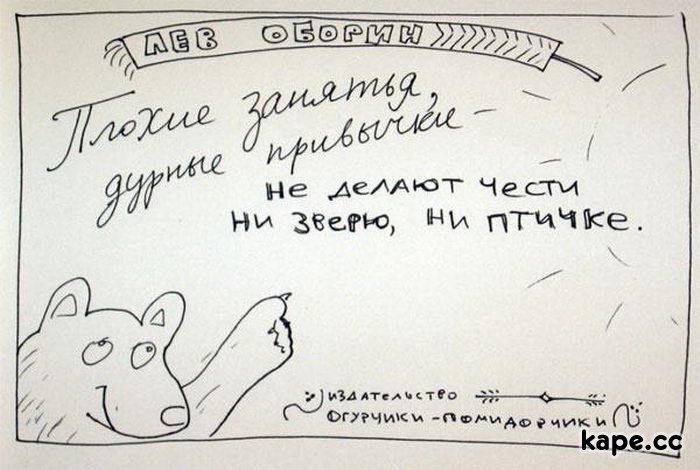 ЛЕВ ОБОРИН
Плохие занятья,
дурные привычки —
не делают чести
ни зверю, ни птичке.
издательство
огурчики-помидорчики
kape.cc